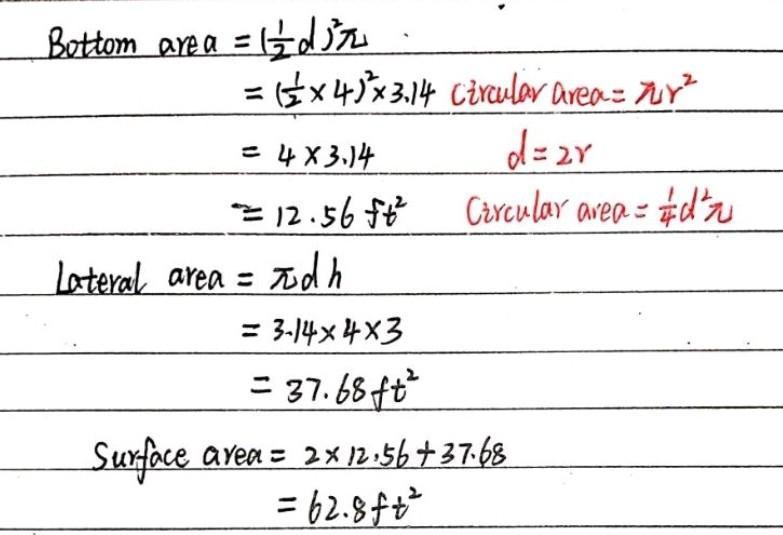 Bottom area = (½d)²π
= (½×4)²×3.14 Circular area = πr²
= 4×3.14 d=2r
= 12.56 ft² Circular area = ¼d²π
Lateral area = πdh
= 3.14×4×3
= 37.68 ft²
Surface area = 2×12.56+37.68
= 62.8 ft²